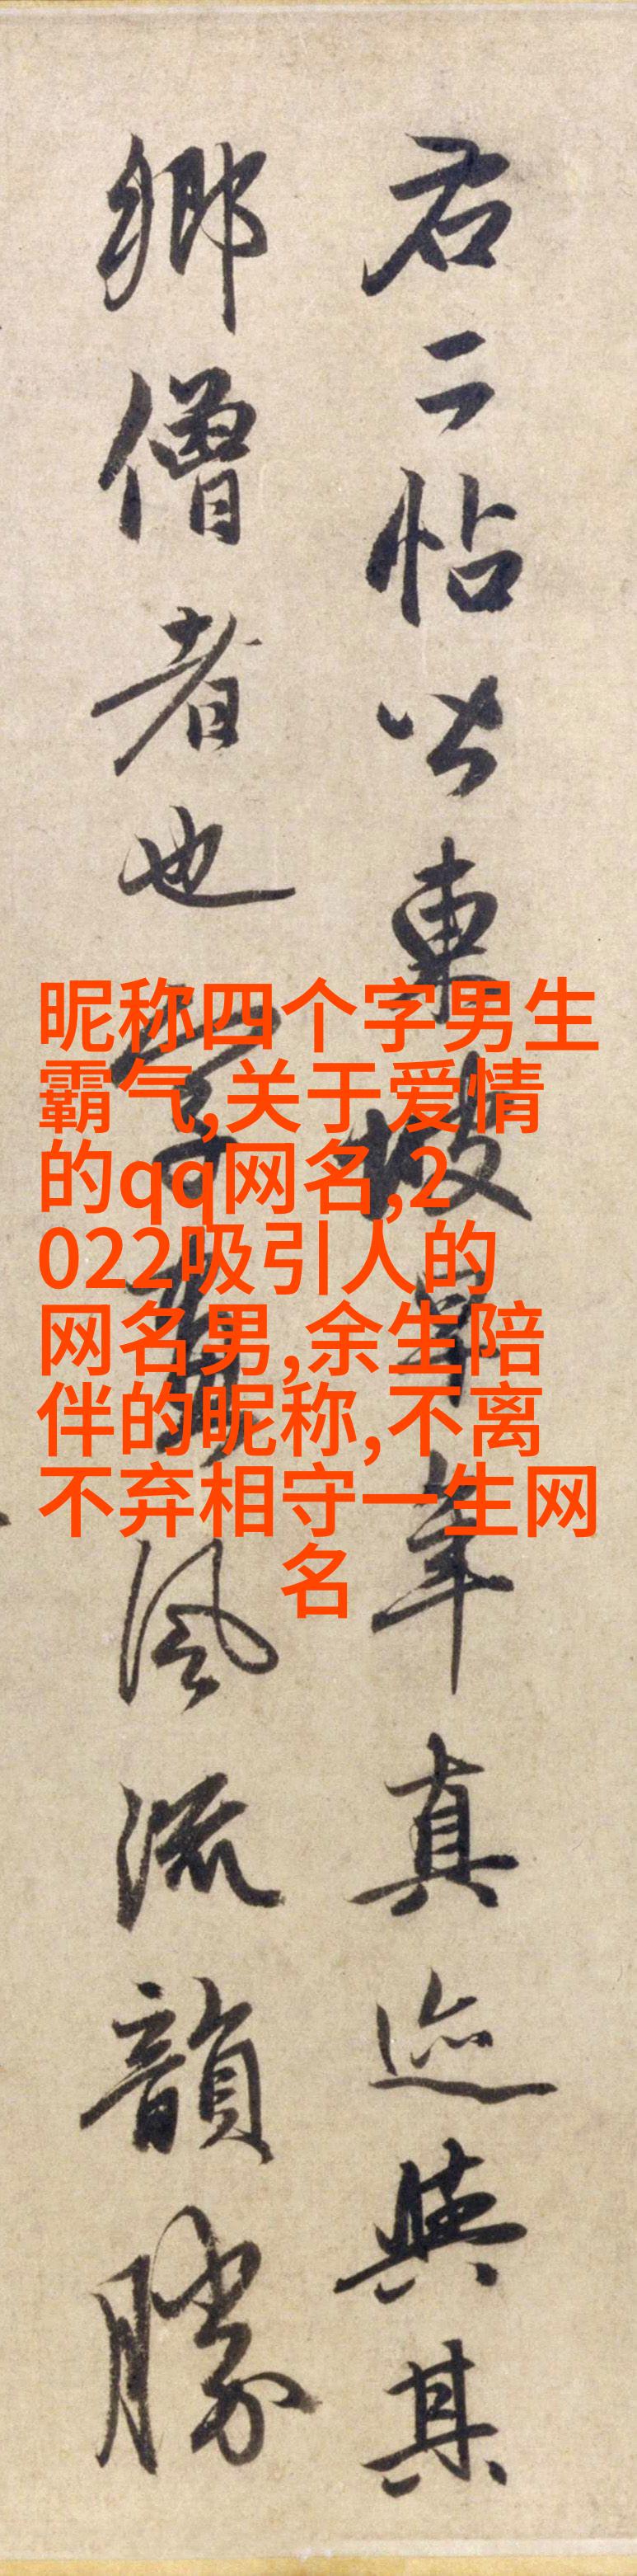 右二帖皆東坡早年真迹與其
鄉僧者也字畫風流韻勝
昵称四个字男生
霸气,关于爱情
的qq网名,2
022吸引人的
网名男,余生陪
伴的昵称,不离
不弃相守一生网
名